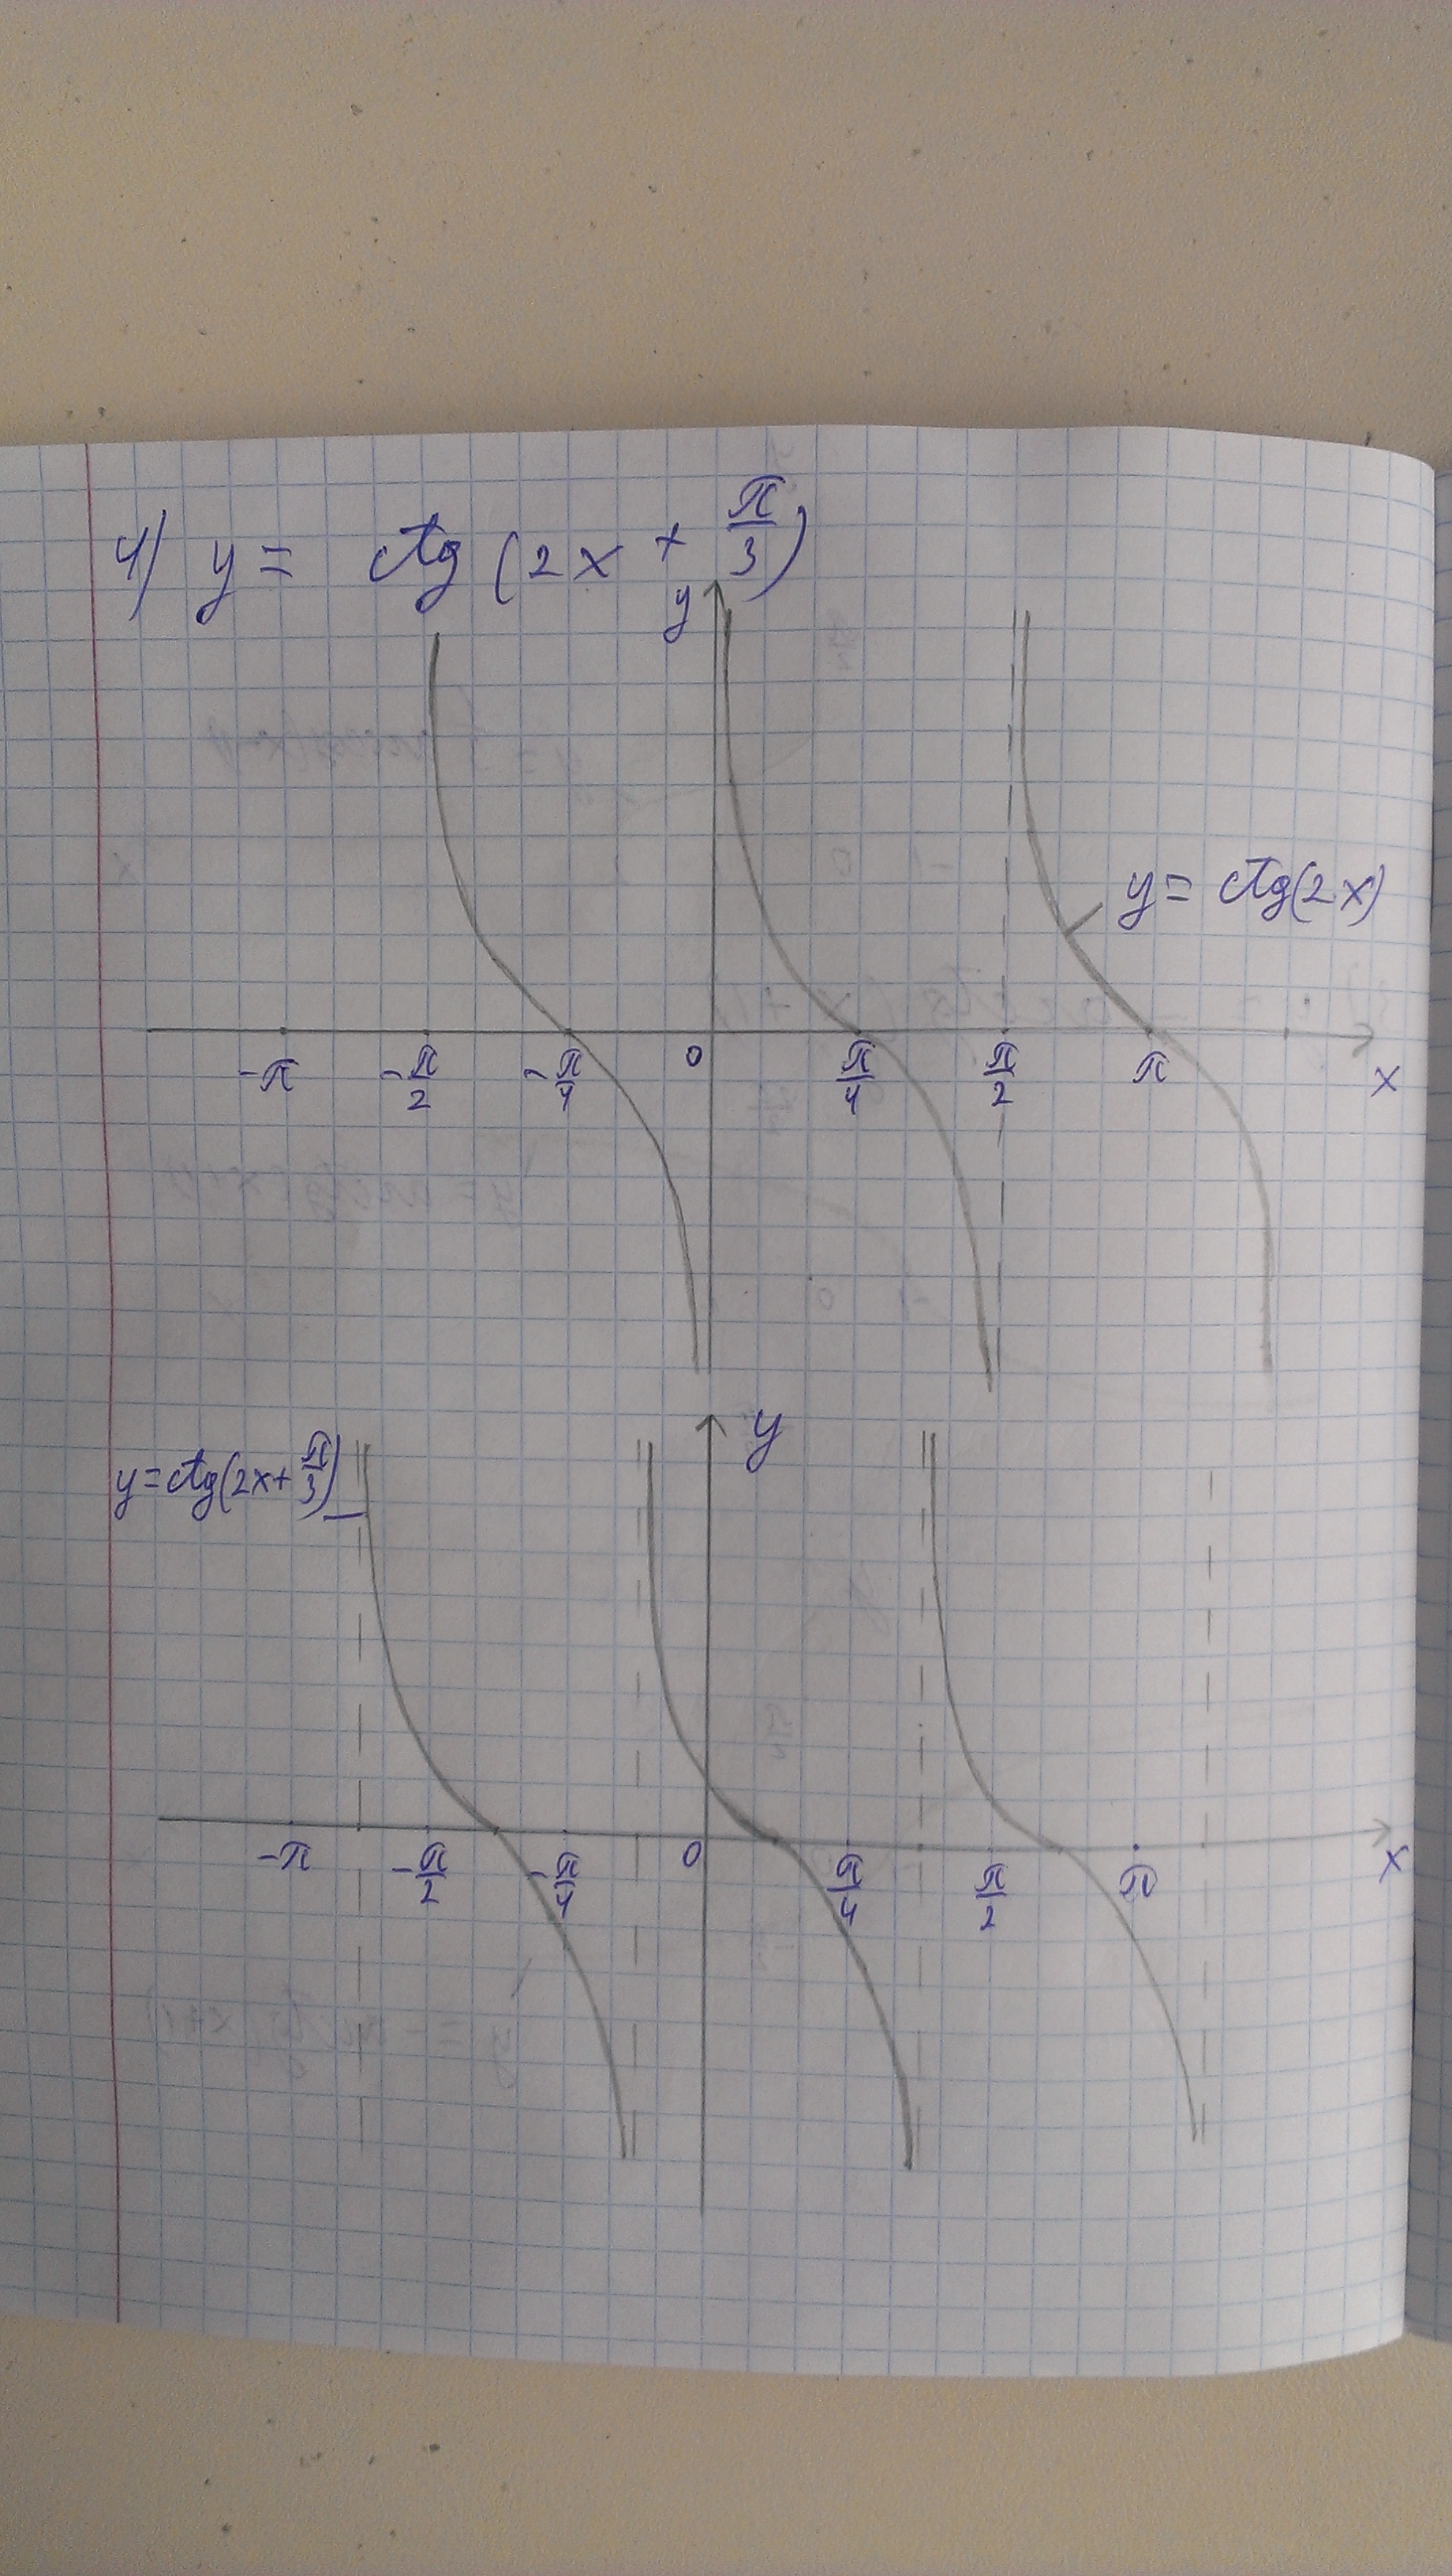 4) y = ctg (2x + π/3)
y
y = ctg(2x)
-π -π/2 -π/4 0 π/4 π/2 π x
y
y = ctg(2x + π/3)
-π -π/2 -π/4 0 π/4 π/2 π x